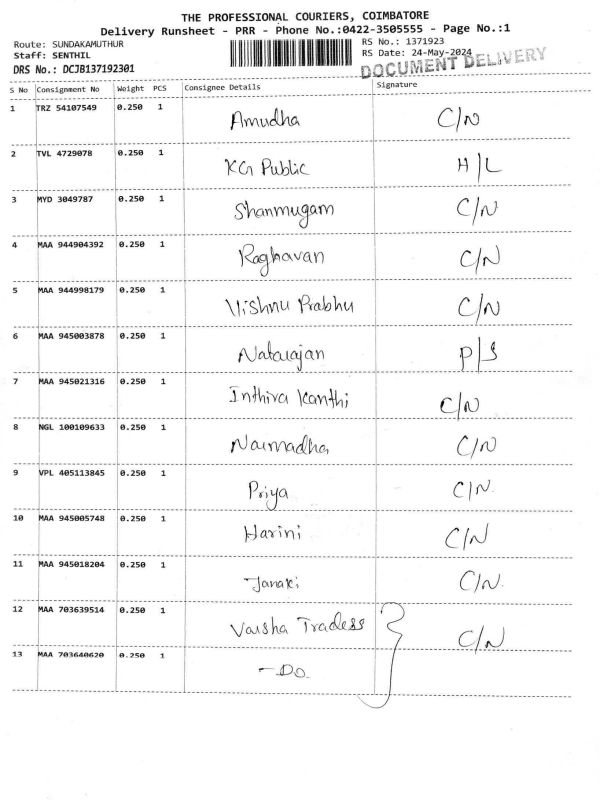 THE PROFESSIONAL COURIERS, COIMBATORE
Delivery Runsheet - PRR - Phone No.:0422-3505555 - Page No.:1
Route: SUNDAKAMUTHUR
RS No.: 1371923
Staff: SENTHIL
RS Date: 24-May-2024
DRS No.: DCJB137192301
DOCUMENT DELIVERY
S No Consignment No Weight PCS Consignee Details Signature
1 TRZ 54107549 0.250 1 Amudha C/N
2 TVL 4729078 0.250 1 KG Public H/L
3 MYD 3049787 0.250 1 Shanmugam C/N
4 MAA 944904392 0.250 1 Raghavan C/N
5 MAA 944998179 0.250 1 Vishnu Prabhu C/N
6 MAA 945003878 0.250 1 Natarajan P/S
7 MAA 945021316 0.250 1 Inthira Kanthi C/N
8 NGL 100109633 0.250 1 Narmadha C/N
9 VPL 405113845 0.250 1 Priya C/N.
10 MAA 945005748 0.250 1 Harini C/N
11 MAA 945018204 0.250 1 Janaki C/N.
12 MAA 703639514 0.250 1 Varsha Tradess C/N
13 MAA 703640620 0.250 1 -Do.